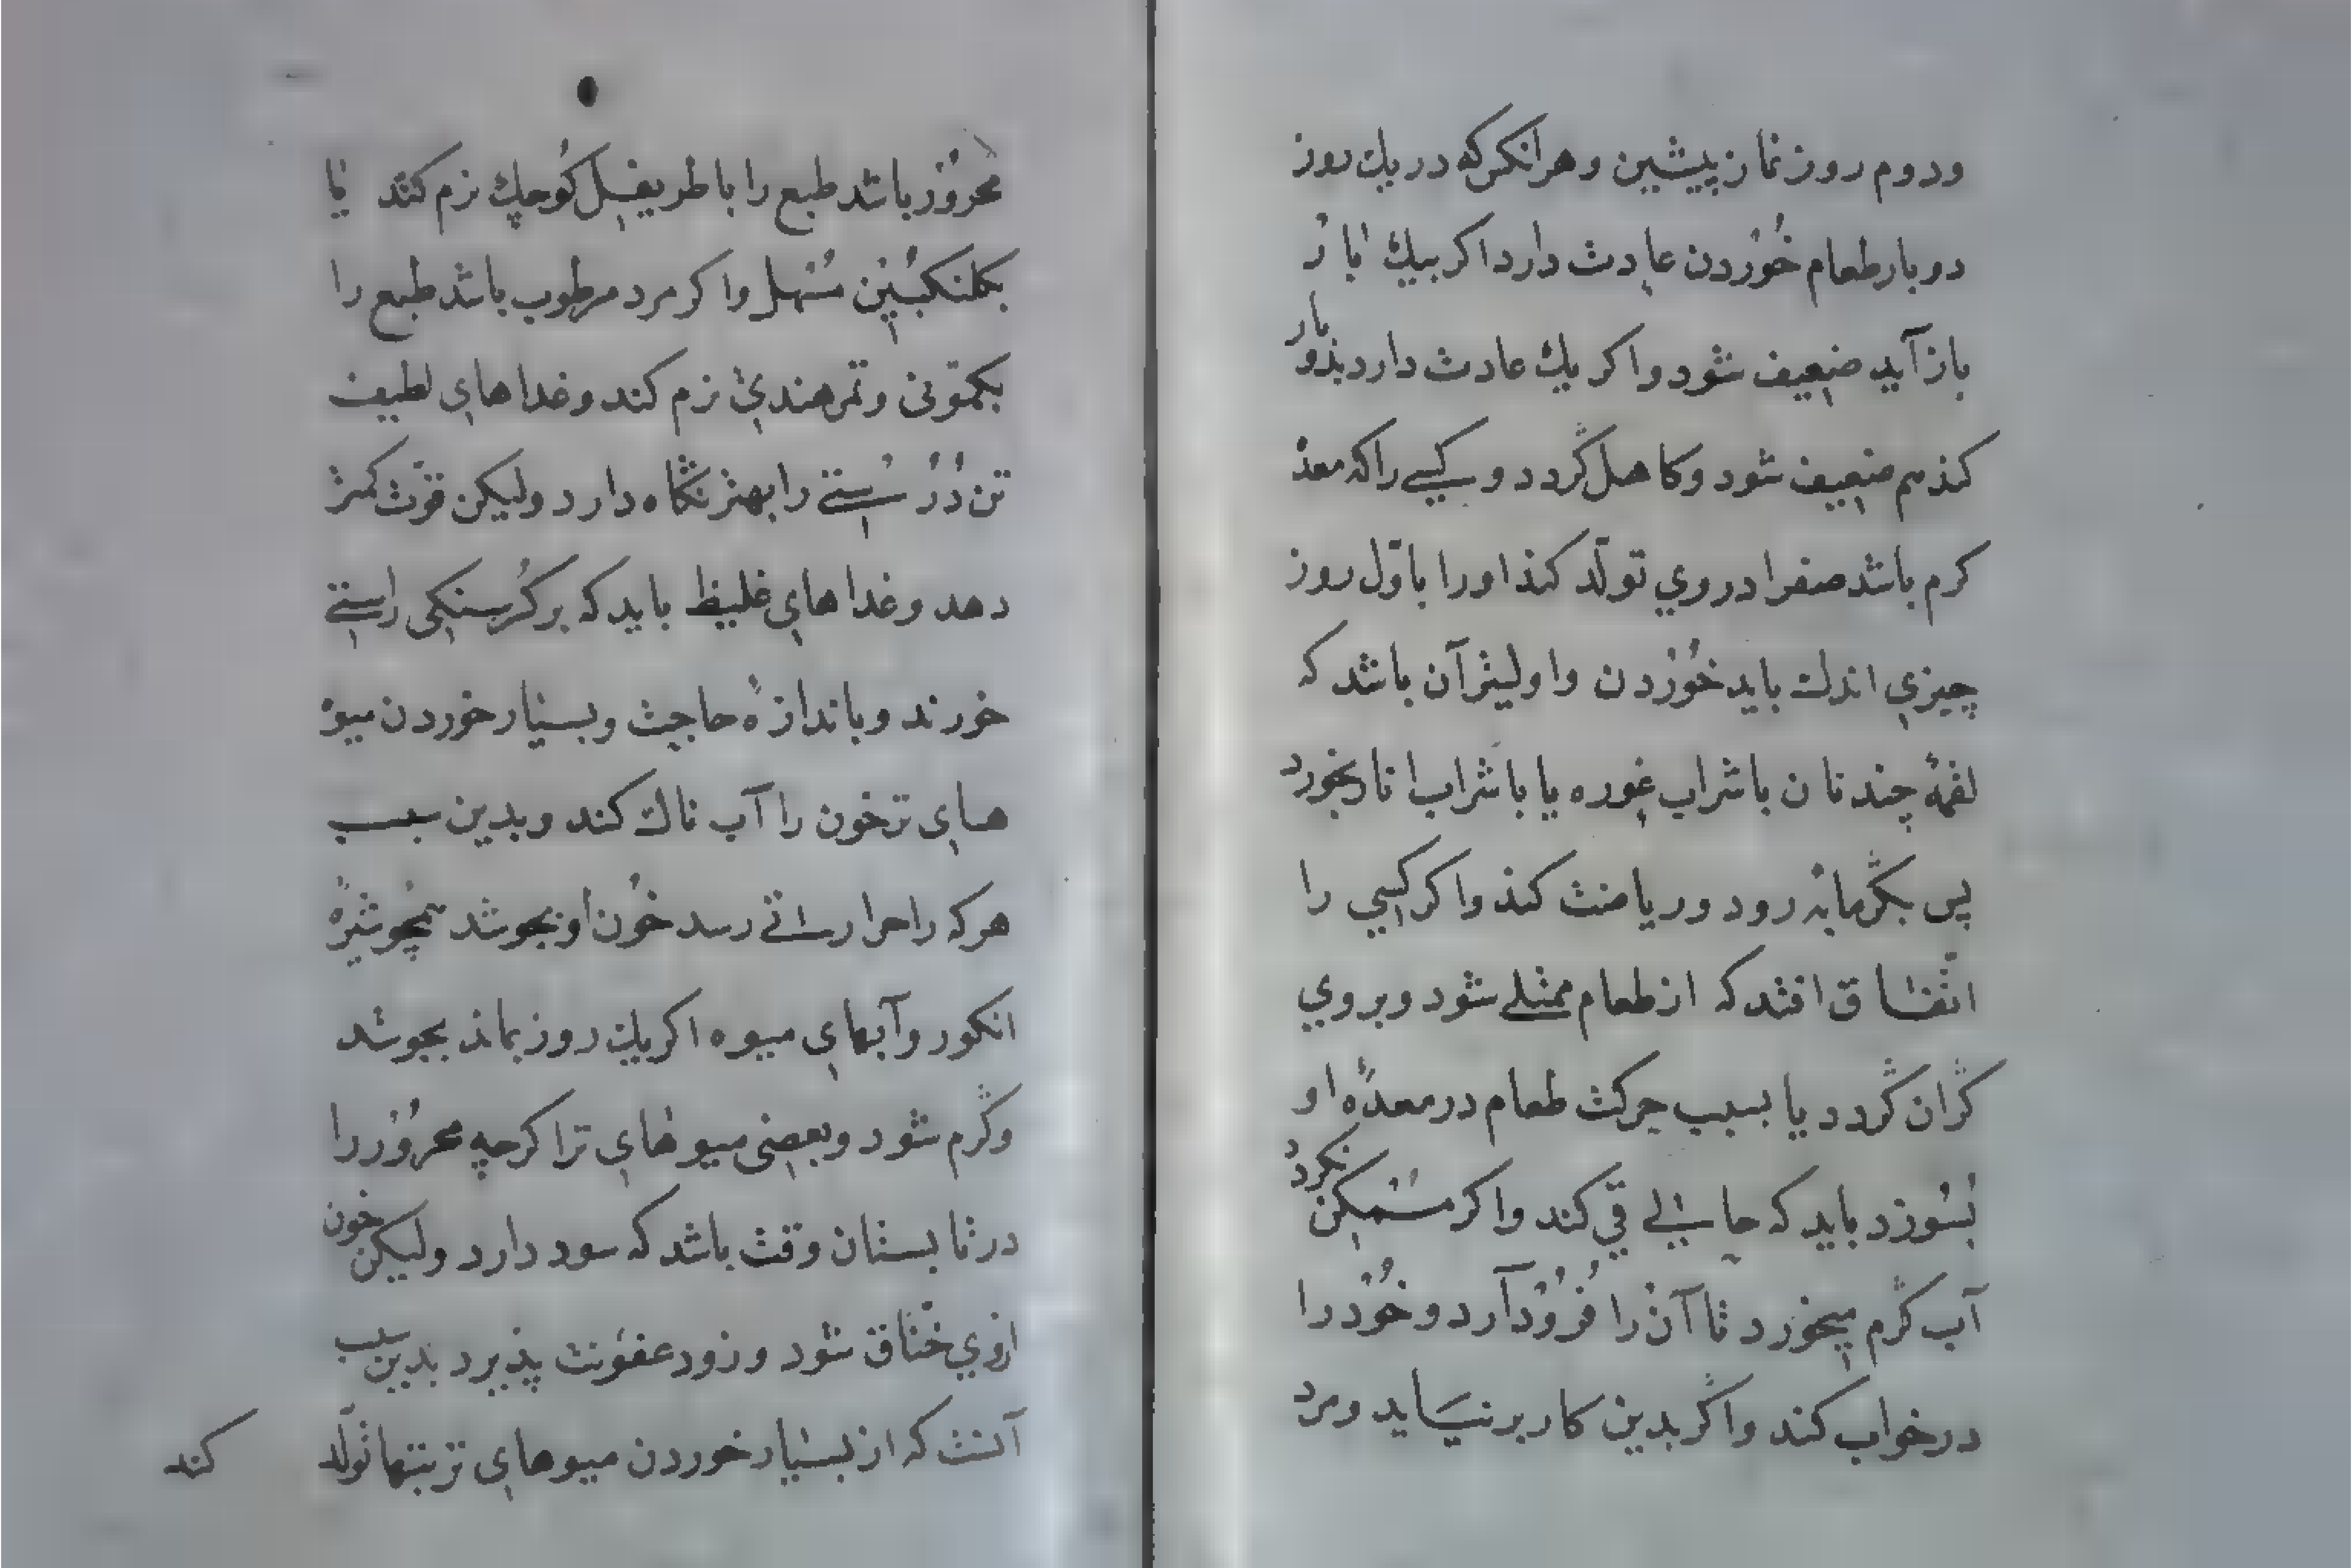 ودوم روز نماز پیشین وهرانکس که در یك روز
دوبار طعام خُوردن عادت دارد اکر بیك بار
باز آید ضعیف شود واکر یك عادت دارد بدو بار
کند هم ضعیف شود وکاهل گردد وکسے را که معدهٔ
کرم باشد صفرا در وي تولّد کند او را باوّل روز
چیزي اندك باید خُوردن واولیتر آن باشد که
لقمهٔ چند نان باشراب غوره یا باشراب انار بخورد
پس بگرمابه رود وریاضت کند واکر کسي را
اتّفاق افتد که از طعام ممتلے شود وبروي
گران گردد یا بسبب حرکت طعام در معدهٔ او
بسُوزد باید که حالے قی کند واکر مُمکن نکردد
آب گرم بخورد تا آن را فُرُود آرد وخُود را
در خواب کند واگر بدین کار برنیاید ومرد
محرُور باشد طبع را باطریفل کُوچك نرم کند یا
بکلنکبُین مُسهل واکر مرد مرطوب باشد طبع را
بکمّونی وتمر هندي نرم کند وغداهاي لطیف
تن دُرُستے را بهتر نگاه دارد ولیکن قوّت کمتر
دهد وغداهاي غلیظ باید که بر کُرسنکی راستے
خورند وباندازهٔ حاجت وبسیار خوردن میوه
هاي تر خون را آب ناك کند وبدین سبب
هرکه را حرارتے رسد خُون او بجوشد همچو شیرهٔ
انکور وآبهاي میوه اکر یك روز بماند بجوشد
وگرم شود وبعضی میوهاي تر اکرچه محرُور را
در تابستان وقت باشد که سود دارد ولیکن خون
ازوي خنّاق شود وزود عفونت پذیرد بدین سبب
آنست که از بسیار خوردن میوهاي تر تبها تولّد
کند